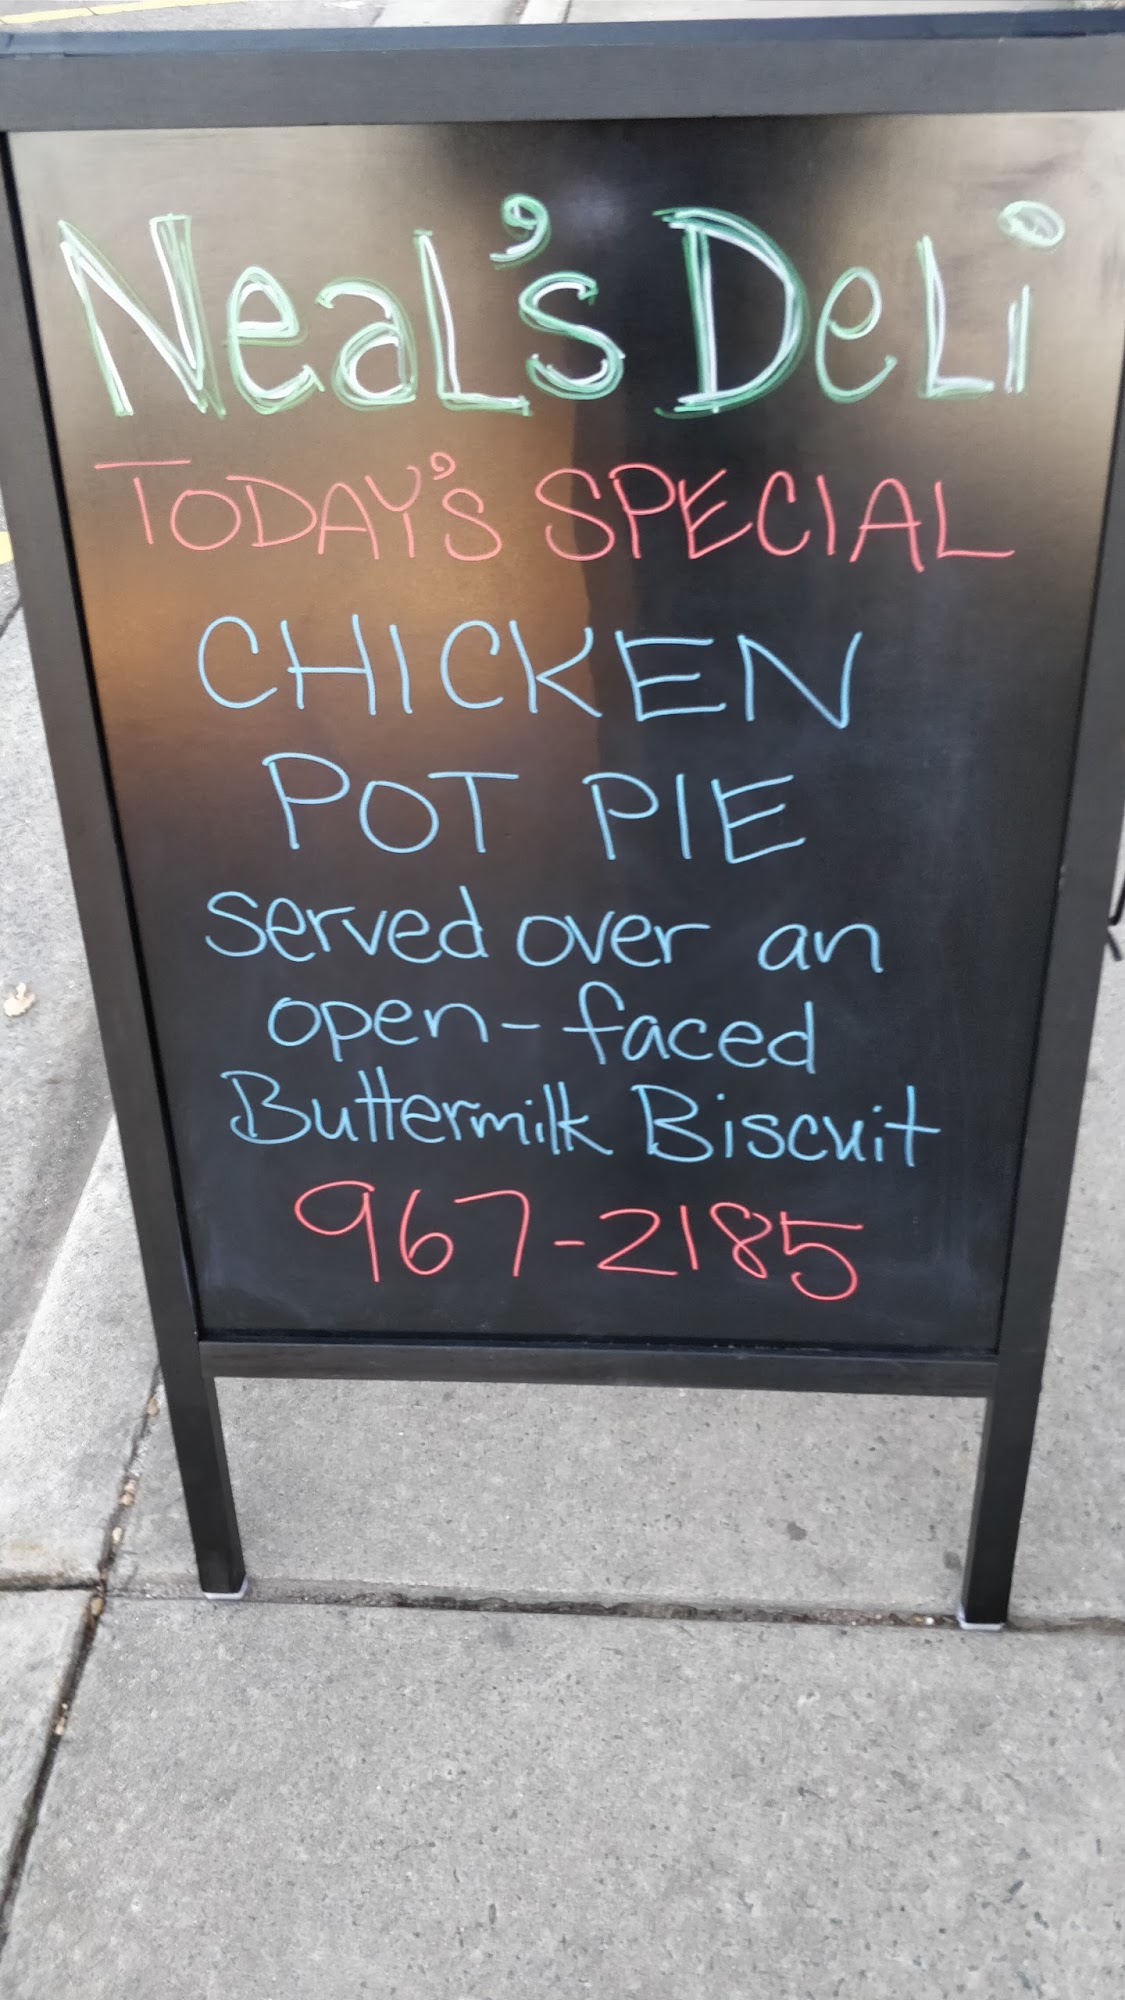 Neal's Deli
TODAY'S SPECIAL
CHICKEN
POT PIE
served over an
open-faced
Buttermilk Biscuit
967-2185